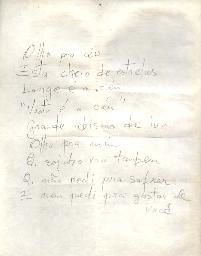 Olho pro céu
Está cheio de estrelas
Longe é o céu
"Verde" é o céu
Grande abismo de
Olho pra mim
Q. também
Q. não pedi pra sofrer
E nem pedi pra gostar de
você